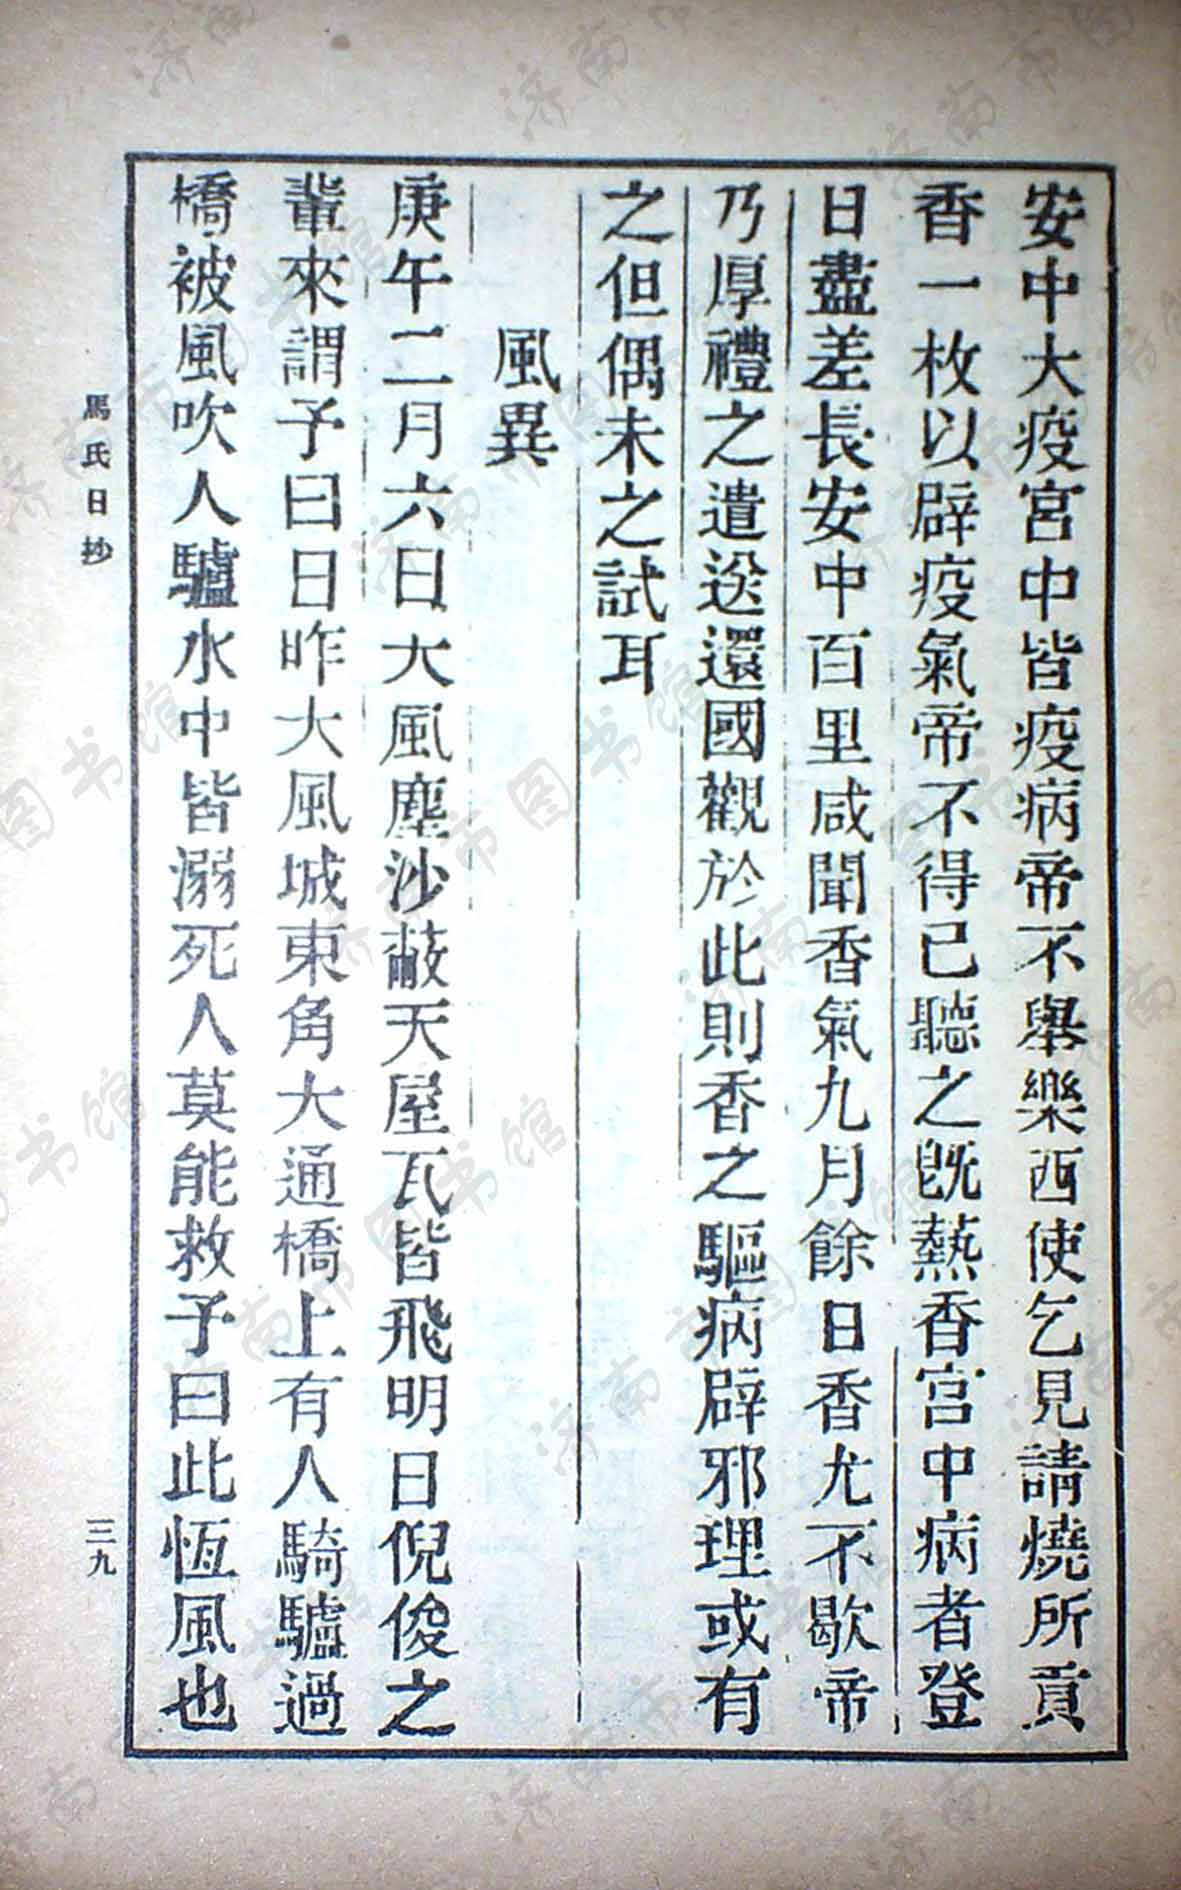 安中大疫宮中皆疫病帝不舉樂西使乞見請燒所貢
香一枚以辟疫氣帝不得已聽之旣爇香宮中病者登
日盡差長安中百里咸聞香氣九月餘日香尤不歇帝
乃厚禮之遣送還國觀於此則香之驅病辟邪理或有
之但偶未之試耳
風異
庚午二月六日大風塵沙蔽天屋瓦皆飛明日倪俊之
輩來謂予曰日昨大風城東角大通橋上有人騎驢過
橋被風吹人驢水中皆溺死人莫能救予曰此恆風也
馬氏日抄
三九
济南市图书馆